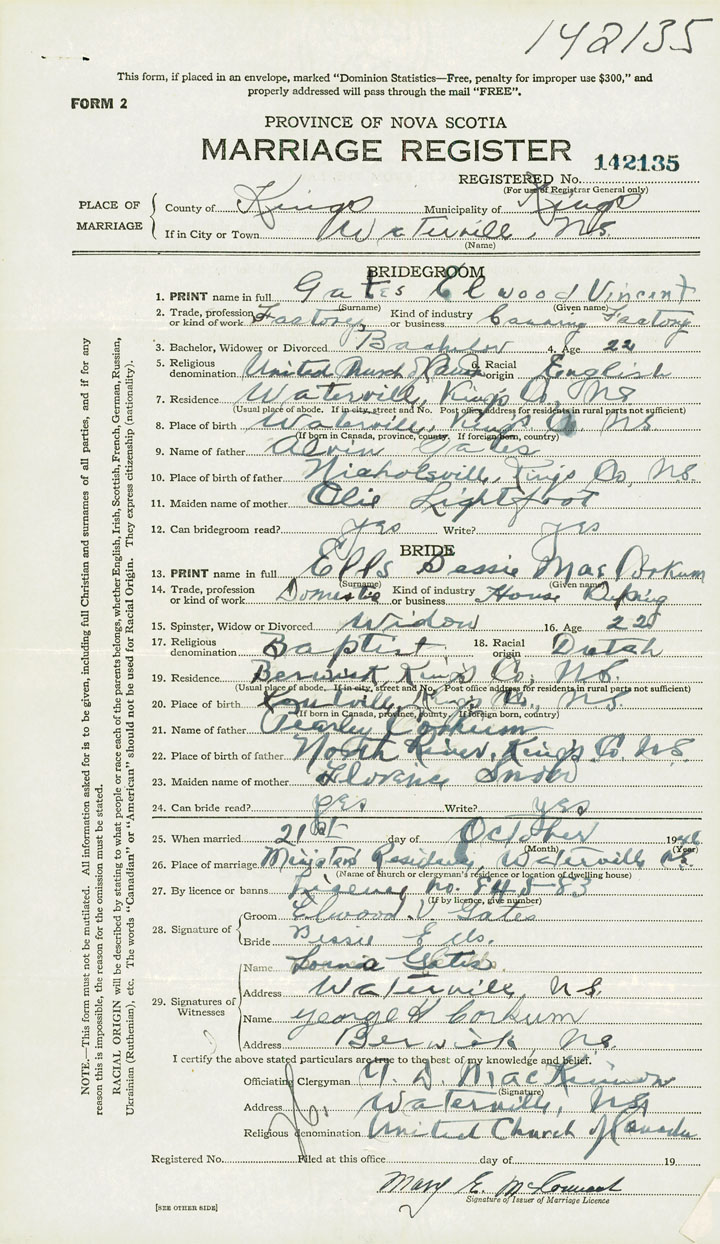 142135
This form, if placed in an envelope, marked "Dominion Statistics—Free, penalty for improper use $300," and
properly addressed will pass through the mail "FREE".
FORM 2
PROVINCE OF NOVA SCOTIA
MARRIAGE REGISTER 142135
REGISTERED No.
(For use of Registrar General only)
PLACE OF MARRIAGE
County of Kings Municipality of Kings
If in City or Town Waterville, N.S.
(Name)
BRIDEGROOM
1. PRINT name in full Gates Elwood Vincent
(Surname) (Given name)
2. Trade, profession or kind of work Factory Kind of industry or business Canning Factory
3. Bachelor, Widower or Divorced Bachelor 4. Age 22
5. Religious denomination United Church of Canada 6. Racial origin English
7. Residence Waterville, Kings Co, NS
(Usual place of abode. If in city, street and No. Post office address for residents in rural parts not sufficient)
8. Place of birth Waterville, Kings Co NS
(If born in Canada, province, county. If foreign born, country)
9. Name of father Alvin Gates
10. Place of birth of father Nicholsville, Kings Co, NS.
11. Maiden name of mother Olie Lightfoot
12. Can bridegroom read? yes Write? yes
BRIDE
13. PRINT name in full Ells Bessie Mae Corkum
(Surname) (Given name)
14. Trade, profession or kind of work Domestic Kind of industry or business House
15. Spinster, Widow or Divorced Widow 16. Age 22
17. Religious denomination Baptist 18. Racial origin Dutch
19. Residence Berwick, Kings Co, N.S.
(Usual place of abode. If in city, street and No. Post office address for residents in rural parts not sufficient)
20. Place of birth Kings Co., NS.
(If born in Canada, province, county. If foreign born, country)
21. Name of father Corkum
22. Place of birth of father North River, Kings Co. N.S.
23. Maiden name of mother Florence Snow
24. Can bride read? yes Write? yes
25. When married 21st day of October 19
(Month) (Year)
26. Place of marriage Ministers Residence, Waterville NS.
(Name of church or clergyman's residence or location of dwelling house)
27. By licence or banns License No.
(If by licence, give number)
28. Signature of
Groom Elwood V. Gates
Bride Bessie Ells.
29. Signatures of Witnesses
Name Lorna Gates
Address Waterville, N.S.
Name George H Corkum
Address Berwick, NS
I certify the above stated particulars are true to the best of my knowledge and belief.
Officiating Clergyman MacKinnon
(Signature)
Address Waterville, NS,
Religious denomination United Church of Canada
Registered No. Filed at this office day of 19
Mary E.
Signature of Issuer of Marriage Licence
[SEE OTHER SIDE]
NOTE.—This form must not be mutilated. All information asked for is to be given, including full Christian and surnames of all parties, and if for any
reason this is impossible, the reason for the omission must be stated.
RACIAL ORIGIN will be described by stating to what people or race each of the parents belongs, whether English, Irish, Scottish, French, German, Russian,
Ukrainian (Ruthenian), etc. The words "Canadian" or "American" should not be used for Racial Origin. They express citizenship (nationality).